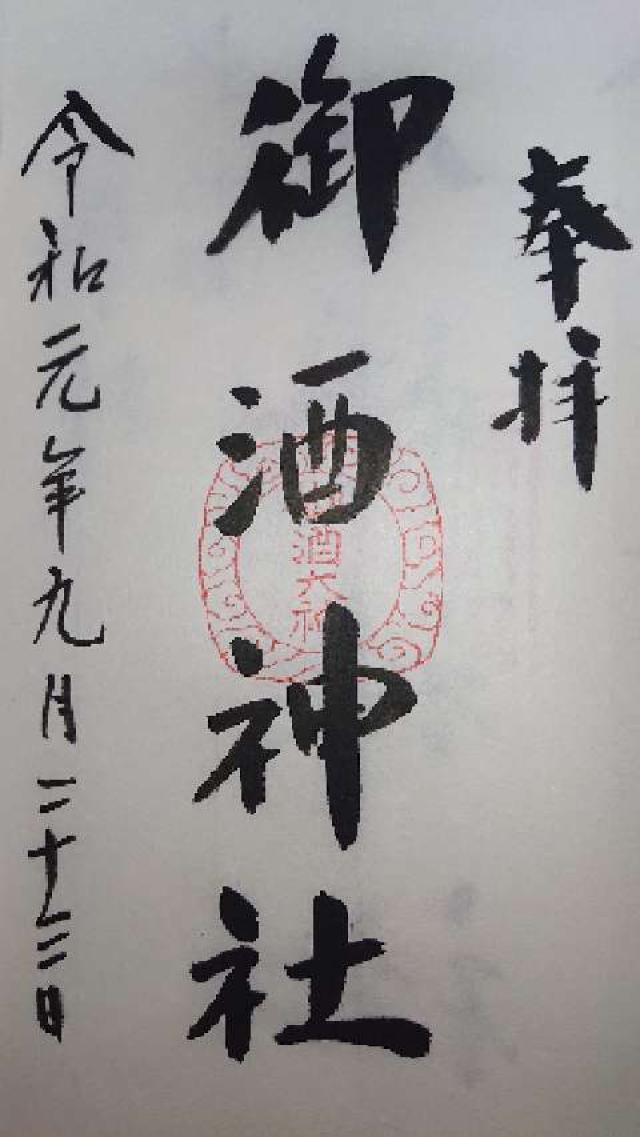 奉拝
御酒神社
酒大神
令和元年九月二十三日